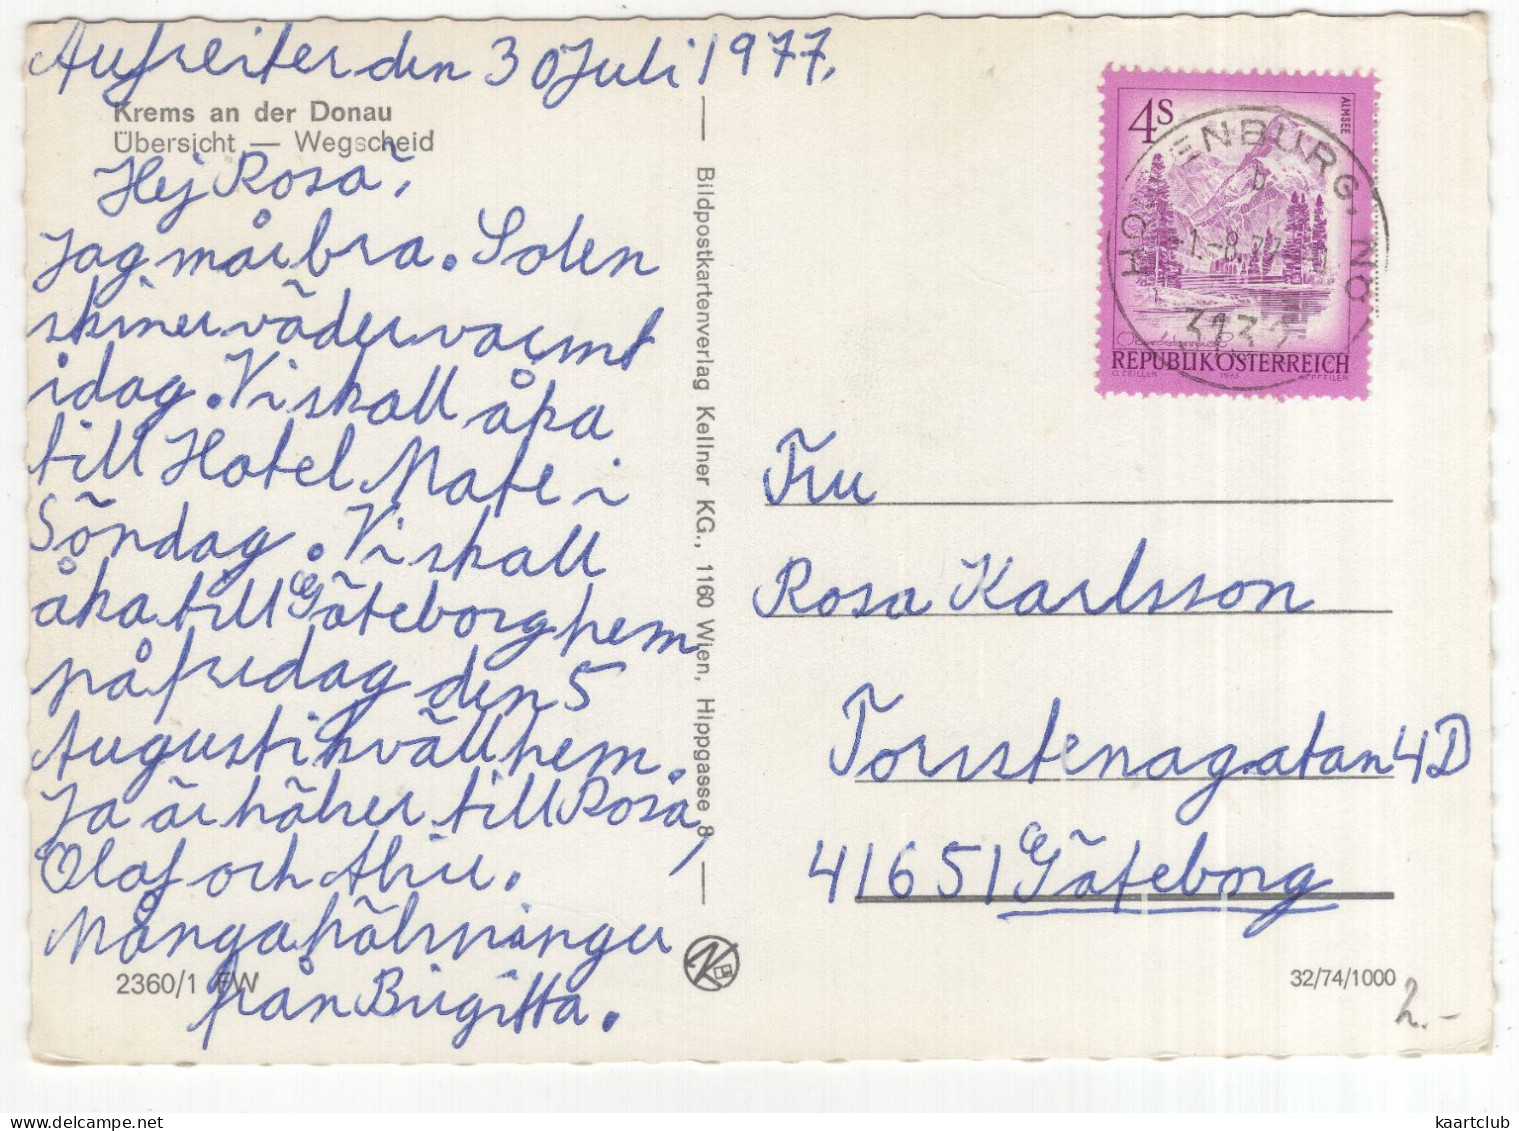 Aufreiter den 30 Juli 1977,
Krems an der Donau
Übersicht — Wegscheid
Hej Rosa,
Jag mår bra. Solen
skiner väder varmt
idag. Vi skall åka
till Hotel Mate i
Söndag. Vi skall
åka till Göteborg hem
på fredag den 5
Augusti kväll hem.
Ja är häher till Rosa,
Olaf och
Många hälsninger
från Birgitta.
2360/1 FW
— Bildpostkartenverlag Kellner KG., 1160 Wien, Hippgasse 8 —
K
4S
ALMSEE
REPUBLIK ÖSTERREICH
1973
-1.-8.77
b
313
Fru
Rosa Karlsson
Torstenagatan 4D
41651 Göteborg
32/74/1000
2.-
kaartclub
delcampe.net